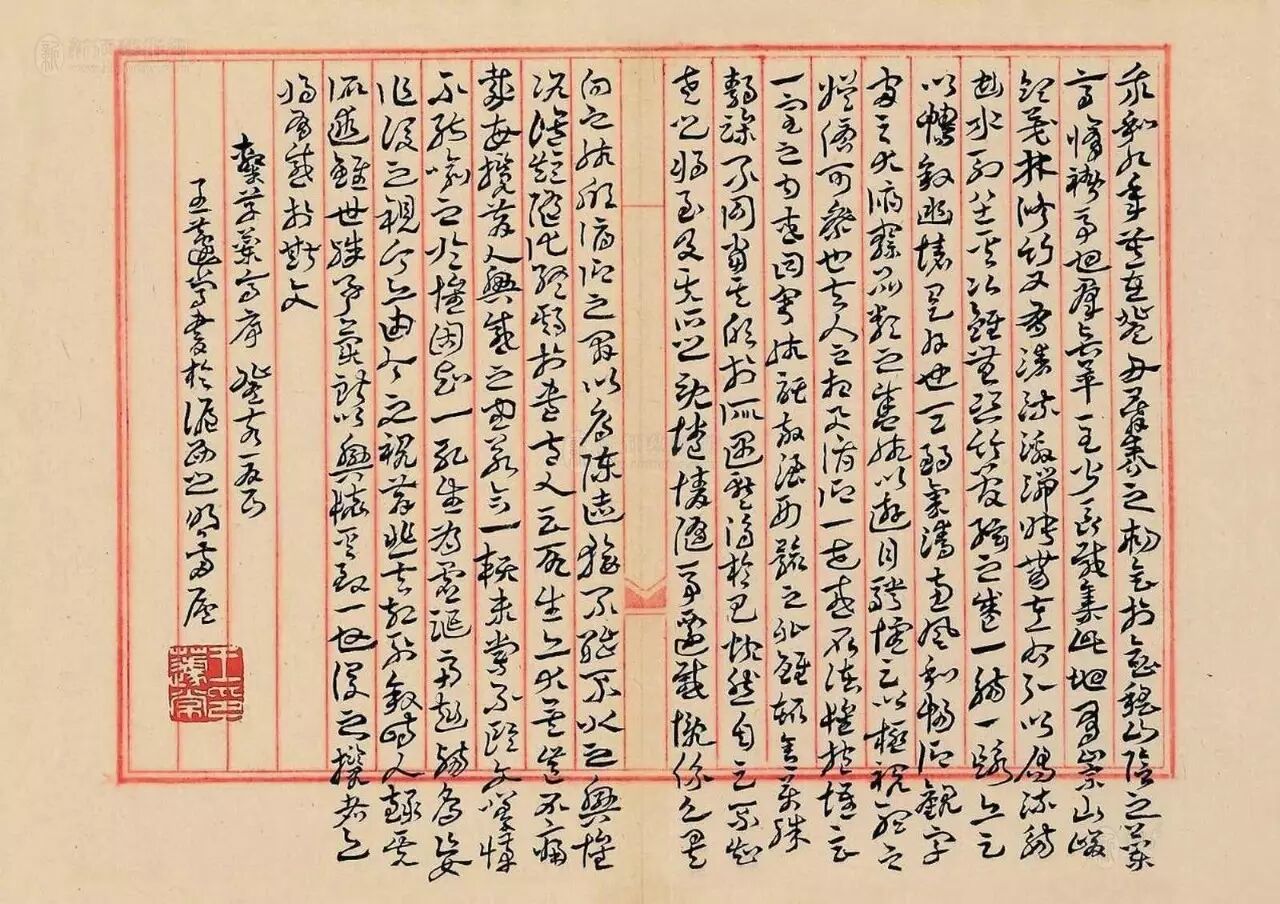 永和九年歲在癸丑暮春之初會於會稽山陰之蘭
亭脩禊事也群賢畢至少長咸集此地有崇山峻
領茂林脩竹又有清流激湍映帶左右引以為流觴
曲水列坐其次雖無絲竹管弦之盛一觴一詠亦足
以暢敘幽情是日也天朗氣清惠風和暢仰觀宇
宙之大俯察品類之盛所以遊目騁懷足以極視聽之
娛信可樂也夫人之相與俯仰一世或取諸懷抱悟言
一室之內或因寄所託放浪形骸之外雖趣舍萬殊
靜躁不同當其欣於所遇暫得於己快然自足不知
老之將至及其所之既惓情隨事遷感慨係之矣
向之所欣俯仰之間以為陳迹猶不能不以之興懷
況脩短隨化終期於盡古人云死生亦大矣豈不痛
哉每攬昔人興感之由若合一契未嘗不臨文嗟悼
不能喻之於懷固知一死生為虛誕齊彭殤為妄
作後之視今亦由今之視昔悲夫故列敘時人錄其
所述雖世殊事異所以興懷其致一也後之攬者亦
將有感於斯文
章草蘭亭序
王蘧常書於滬西之明兩廬
王蘧常印